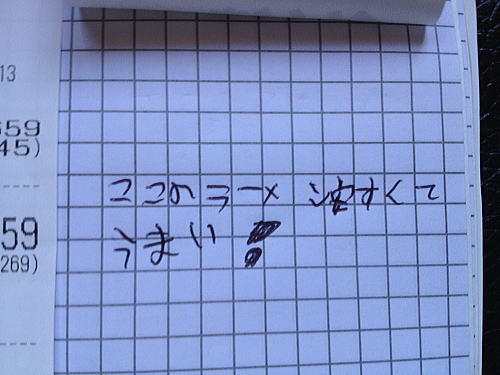 13
659
45)
59
269)
ここのラーメン安すくて
うまい!